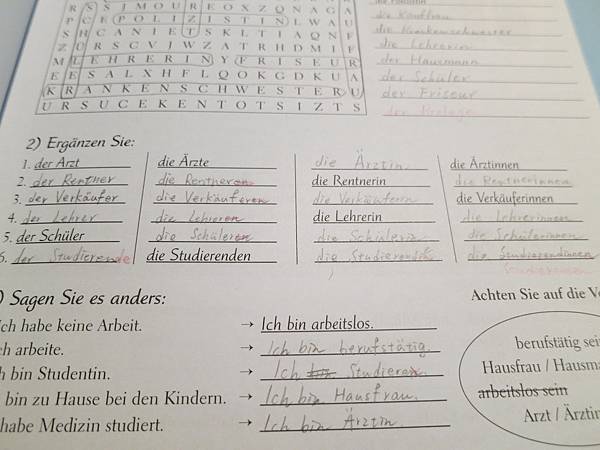 R S S J M O U R E O X Z Q N A G A
P C E P O L I Z I S T I N L W A U
S H C A N I E T S K L T I A Q N F
Z Ü R S C V J W Z A T R H D M I F
M L E H R E R I N Y F R I S E U R
E E S A L X H F L Q O K G D K U A
K R A N K E N S C H W E S T E R U
U R S U C E K E N T O T S I Z T S
die Kauffrau
die Krankenschwester
die Lehrerin
der Hausmann
der Schüler
der Friseur
2) Ergänzen Sie:
1. der Arzt die Ärzte die Ärztin die Ärztinnen
2. der Rentner die Rentneren die Rentnerin die Rentnerinnen
3. der Verkäufer die Verkäuferen die Verkäuferin die Verkäuferinnen
4. der Lehrer die Lehreren die Lehrerin die Lehrerinnen
5. der Schüler die Schüleren die Schülerin die Schülerinnen
6. der Studierende die Studierenden die
) Sagen Sie es anders: Achten Sie auf die
ch habe keine Arbeit. → Ich bin arbeitslos.
ch arbeite. → Ich bin berufstätig.
h bin Studentin. → Ich bin Studieren.
bin zu Hause bei den Kindern. → Ich bin Hausfrau.
habe Medizin studiert. → Ich bin Ärztin.
berufstätig sein
Hausfrau / Hausma
arbeitslos sein
Arzt / Ärztin